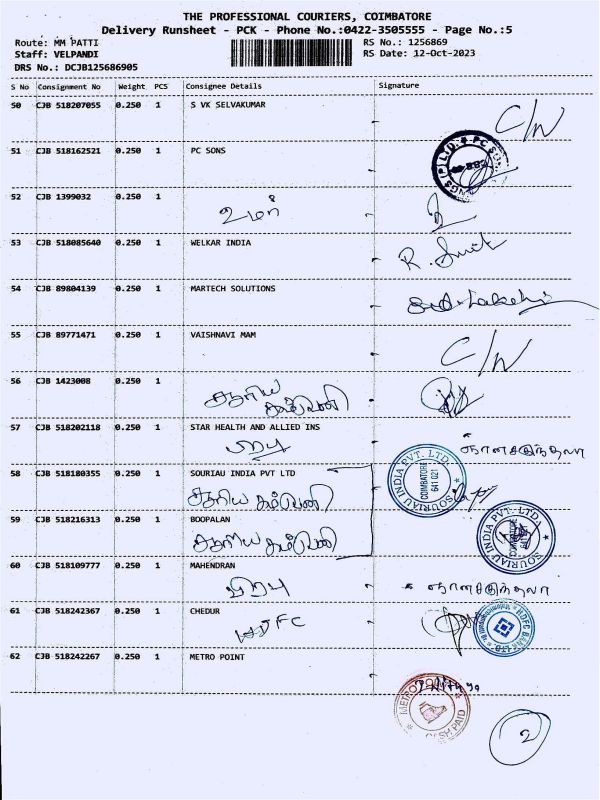 THE PROFESSIONAL COURIERS, COIMBATORE
Delivery Runsheet - PCK - Phone No.:0422-3505555 - Page No.:5
Route: MM PATTI RS No.: 1256869
Staff: VELPANDI RS Date: 12-Oct-2023
DRS No.: DCJB125686905
S No Consignment No Weight PCS Consignee Details Signature
50 CJB 518207055 0.250 1 S VK SELVAKUMAR C/N
51 CJB 518162521 0.250 1 PC SONS
52 CJB 1399032 0.250 1
53 CJB 518085640 0.250 1 WELKAR INDIA
54 CJB 89804139 0.250 1 MARTECH SOLUTIONS
55 CJB 89771471 0.250 1 VAISHNAVI MAM C/N
56 CJB 1423008 0.250 1
57 CJB 518202118 0.250 1 STAR HEALTH AND ALLIED INS
பிரபு
58 CJB 518180355 0.250 1 SOURIAU INDIA PVT LTD
SOURIAU INDIA PVT. LTD. COIMBATORE 641 021
59 CJB 518216313 0.250 1 BOOPALAN
SOURIAU INDIA PVT. LTD. COIMBATORE 641 021
60 CJB 518109777 0.250 1 MAHENDRAN
பிரபு
61 CJB 518242367 0.250 1 CHEDUR
HDFC BANK LTD
62 CJB 518242267 0.250 1 METRO POINT
2